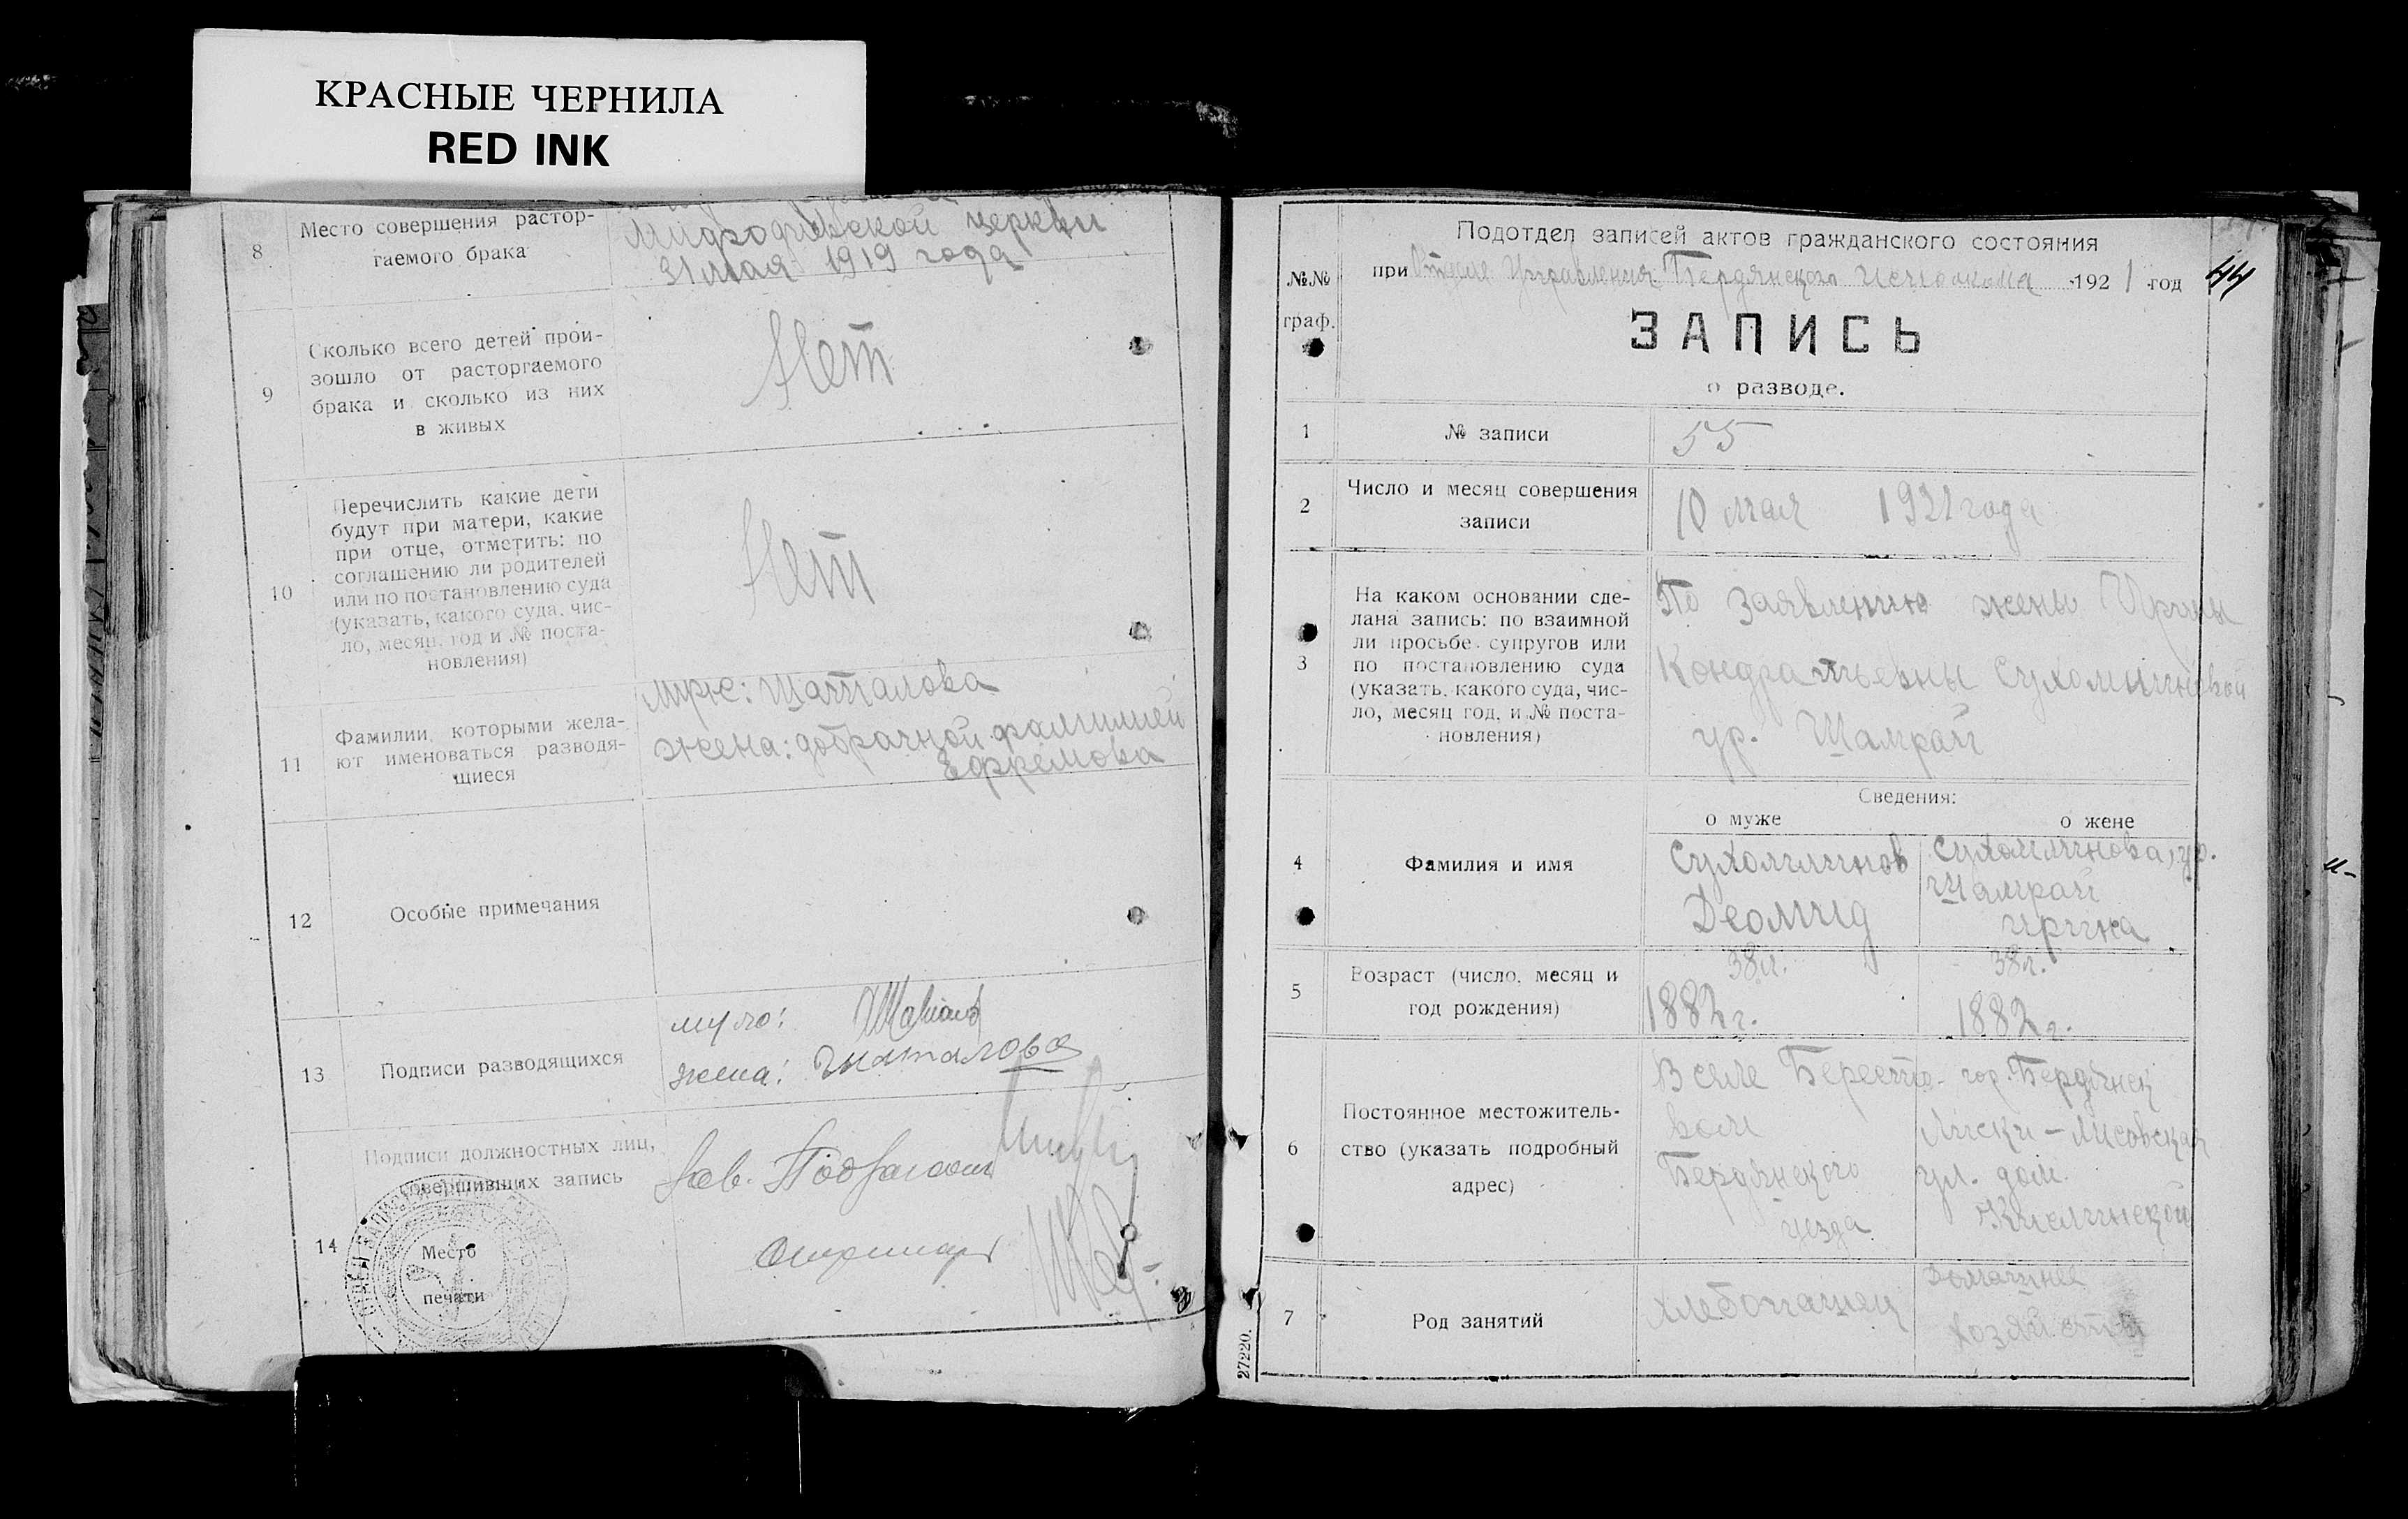 КРАСНЫЕ ЧЕРНИЛА
RED INK
8
Место совершения растор-
гаемого брака
церкви
31 мая 1919 года
9
Сколько всего детей прои-
зошло от расторгаемого
брака и сколько из них
в живых
Нет
10
Перечислить какие дети
будут при матери, какие
при отце, отметить: по
соглашению ли родителей
или по постановлению суда
(указать, какого суда, чис-
ло, месяц, год и № поста-
новления)
Нет
11
Фамилии, которыми жела-
ют именоваться разводя-
щиеся
муж: Шаталова
жена: добрачной фамилией
Ефремова
12
Особые примечания
13
Подписи разводящихся
муж:
жена: Шаталова
14
Подписи должностных лиц,
совершивших запись
Место
печати
Зав.
Подотдел записей актов гражданского состояния
при Отделе Управления Бердянского исполкома 1921 год
44
№№
граф.
ЗАПИСЬ
о разводе.
1
№ записи
55
2
Число и месяц совершения
записи
10 мая 1921 года
3
На каком основании сде-
лана запись: по взаимной
ли просьбе супругов или
по постановлению суда
(указать, какого суда, чис-
ло, месяц год, и № поста-
новления)
По заявлению жены Ирины
Кондратьевны Сухомлиновой
ур. Шамрай
Сведения:
о муже
о жене
4
Фамилия и имя
Сухомлинов
Деомид
Сухомлинова, ур.
Шамрай
Ирина
5
Возраст (число, месяц и
год рождения)
38 л.
1882 г.
38 л.
1882 г.
6
Постоянное местожитель-
ство (указать подробный
адрес)
В селе Бересто-
вом
Бердянского
уезда
гор. Бердянск
Лиски -
ул. дом
7
Род занятий
хлебопашец
домашнее
хозяйство
27220.